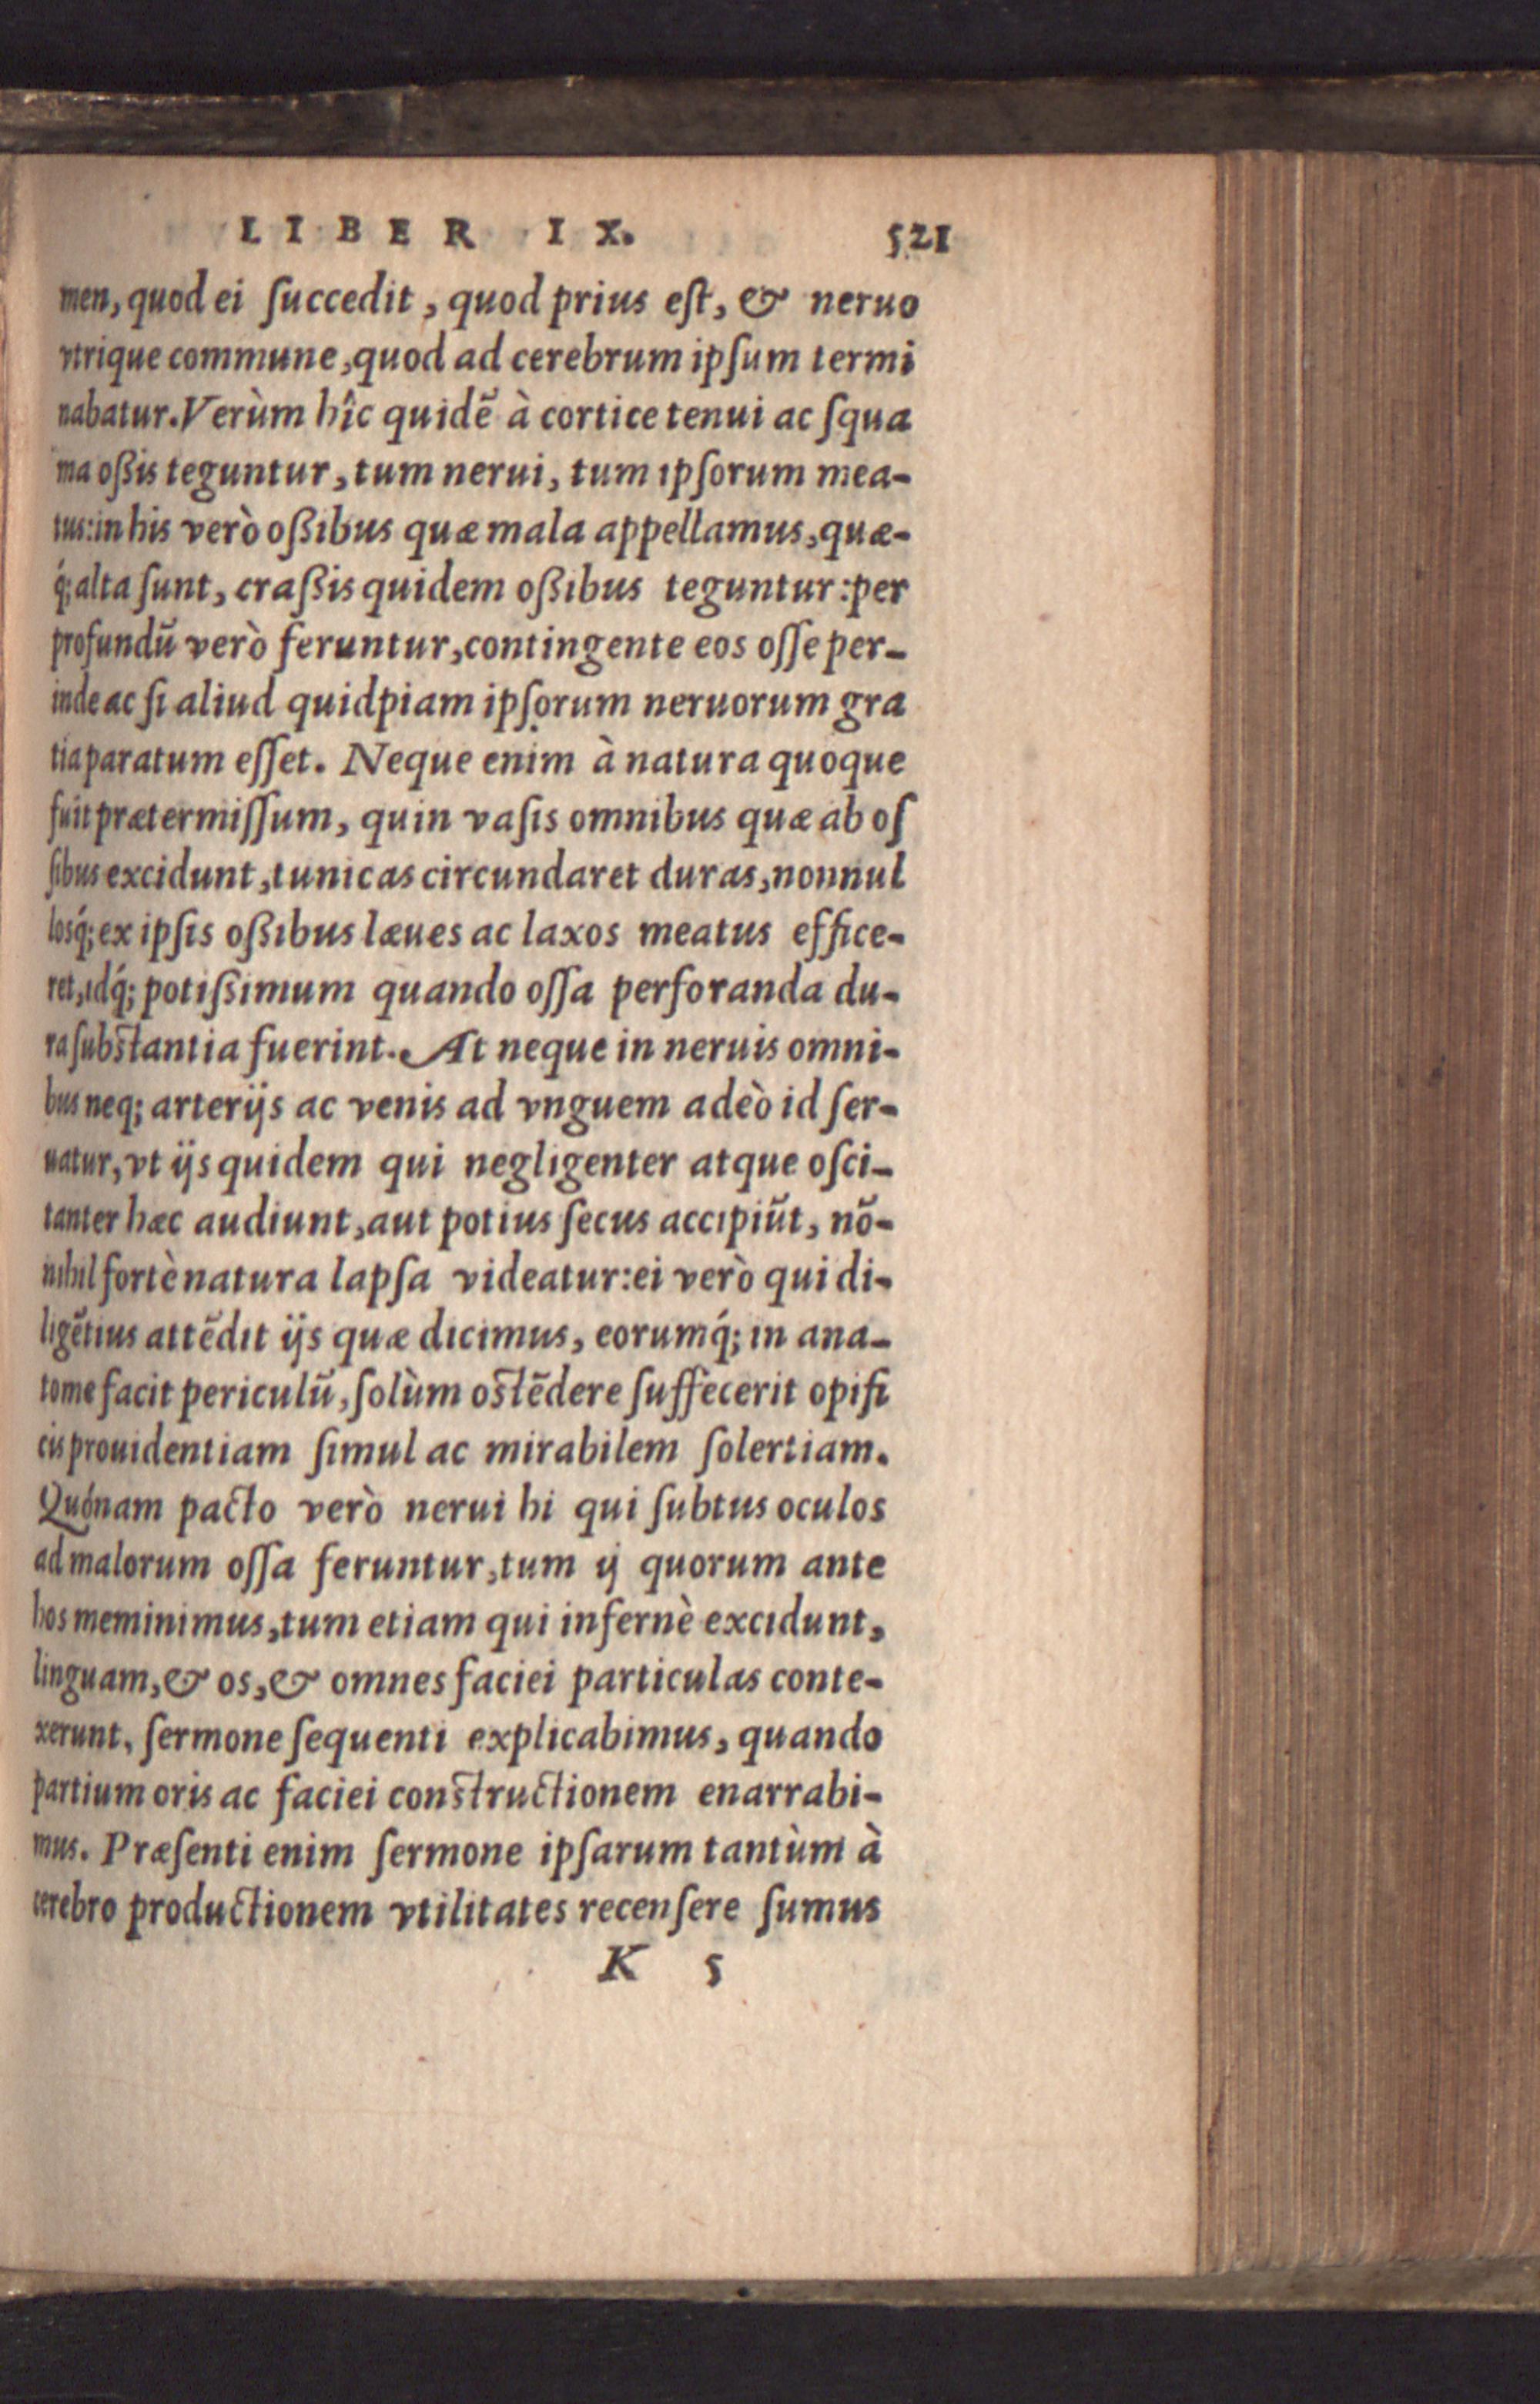 LIBER IX. 521
men, quod ei ſuccedit, quod prius eſt, & neruo
vtrique commune, quod ad cerebrum ipſum termi
nabatur. Verùm hîc quidẽ à cortice tenui ac ſqua
ma oßis teguntur, tum nerui, tum ipſorum mea-
tus: in his verò oßibus quæ mala appellamus, quæ-
q́; alta ſunt, craßis quidem oßibus teguntur: per
profundũ verò feruntur, contingente eos oſſe per-
inde ac ſi aliud quidpiam ipſorum neruorum gra
tia paratum eſſet. Neque enim à natura quoque
fuit prætermiſſum, quin vaſis omnibus quæ ab oſ
ſibus excidunt, tunicas circundaret duras, nonnul
losq́; ex ipſis oßibus læues ac laxos meatus effice-
ret, idq́; potißimum quando oſſa perforanda du-
ra ſubſtantia fuerint. At neque in neruis omni-
bus neq; arterijs ac venis ad vnguem adeò id ſer-
uatur, vt ijs quidem qui negligenter atque oſci-
tanter hæc audiunt, aut potius ſecus accipiũt, nõ-
nihil fortè natura lapſa videatur: ei verò qui di-
ligẽtius attẽdit ijs quæ dicimus, eorumq́; in ana-
tome facit periculũ, ſolùm oſtẽdere ſuffecerit opifi
cis prouidentiam ſimul ac mirabilem ſolertiam.
Quónam pacto verò nerui hi qui ſubtus oculos
ad malorum oſſa feruntur, tum ij quorum ante
hos meminimus, tum etiam qui infernè excidunt,
linguam, & os, & omnes faciei particulas conte-
xerunt, ſermone ſequenti explicabimus, quando
partium oris ac faciei conſtructionem enarrabi-
mus. Præſenti enim ſermone ipſarum tantùm à
cerebro productionem vtilitates recenſere ſumus
K 5